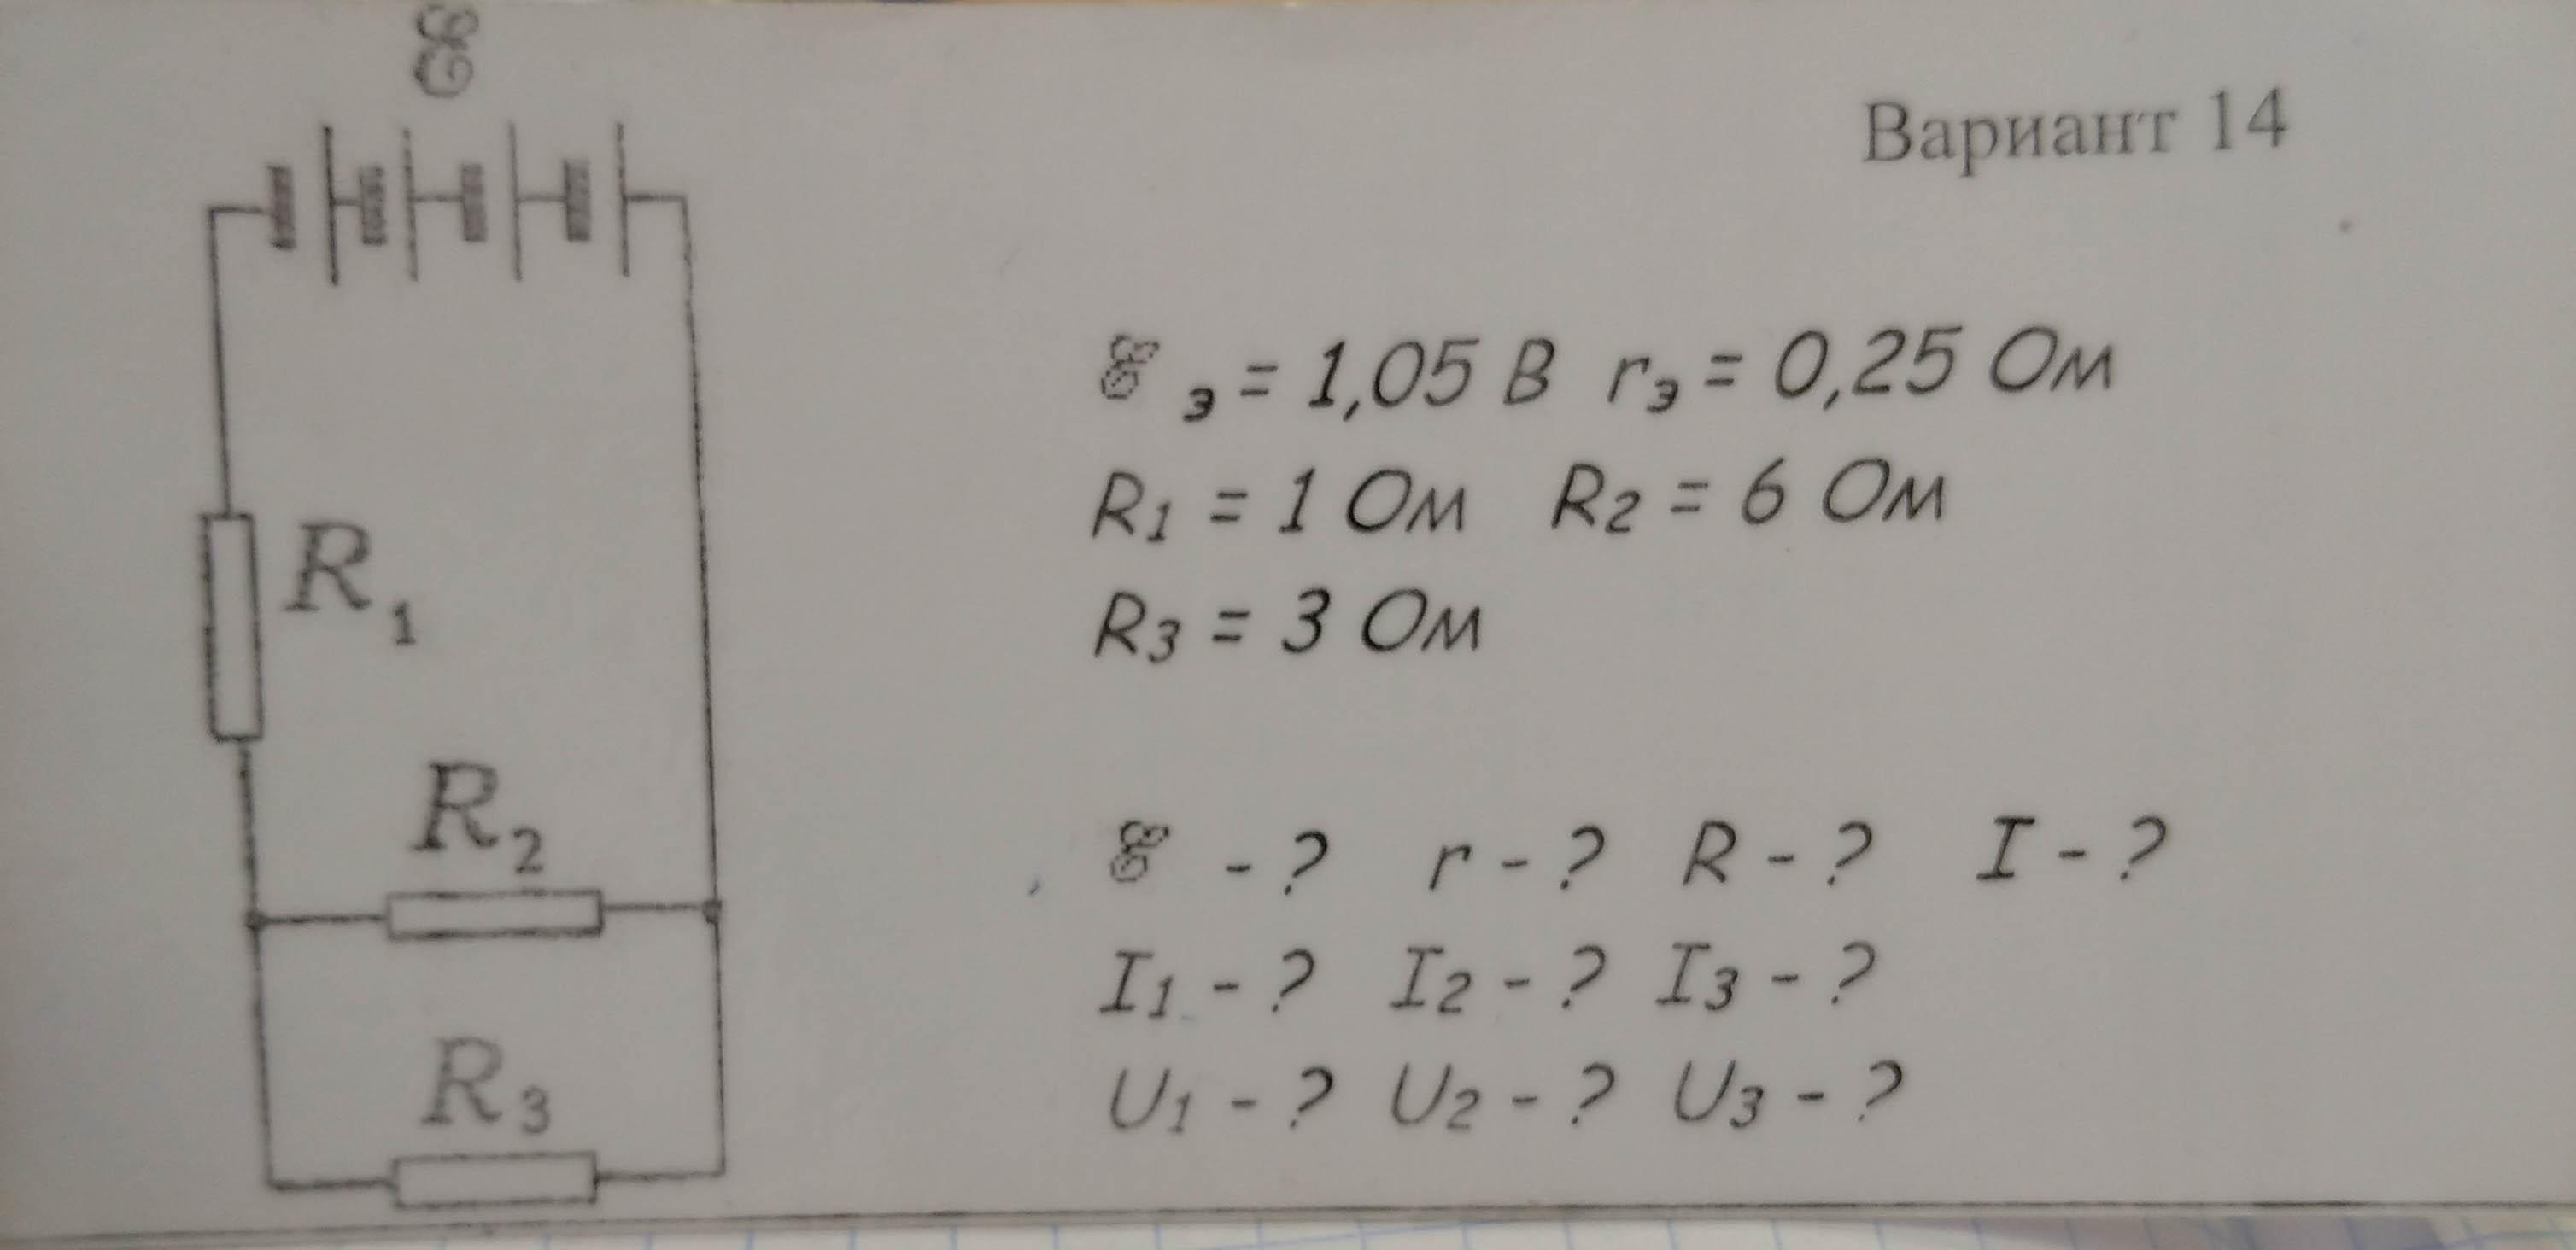 ℰ
Вариант 14
ℰэ = 1,05 В rэ = 0,25 Ом
R1 = 1 Ом R2 = 6 Ом
R3 = 3 Ом
R1
R2
R3
ℰ - ? r - ? R - ? I - ?
I1 - ? I2 - ? I3 - ?
U1 - ? U2 - ? U3 - ?